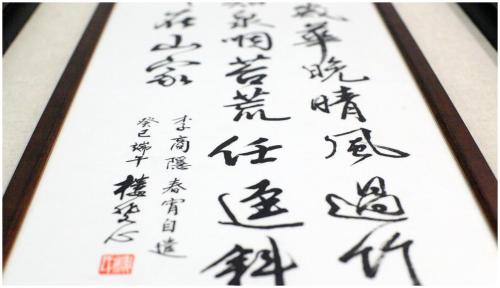 歲華晚晴風過竹
泉咽苔荒任逕斜
在山家
李商隱春宵自遣
癸巳端午